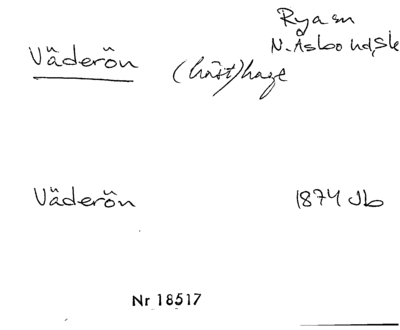 Ryasn
N. Åsbo hd, Sk
Väderön (häst)hage
Väderön 1874 Jb
Nr 18517